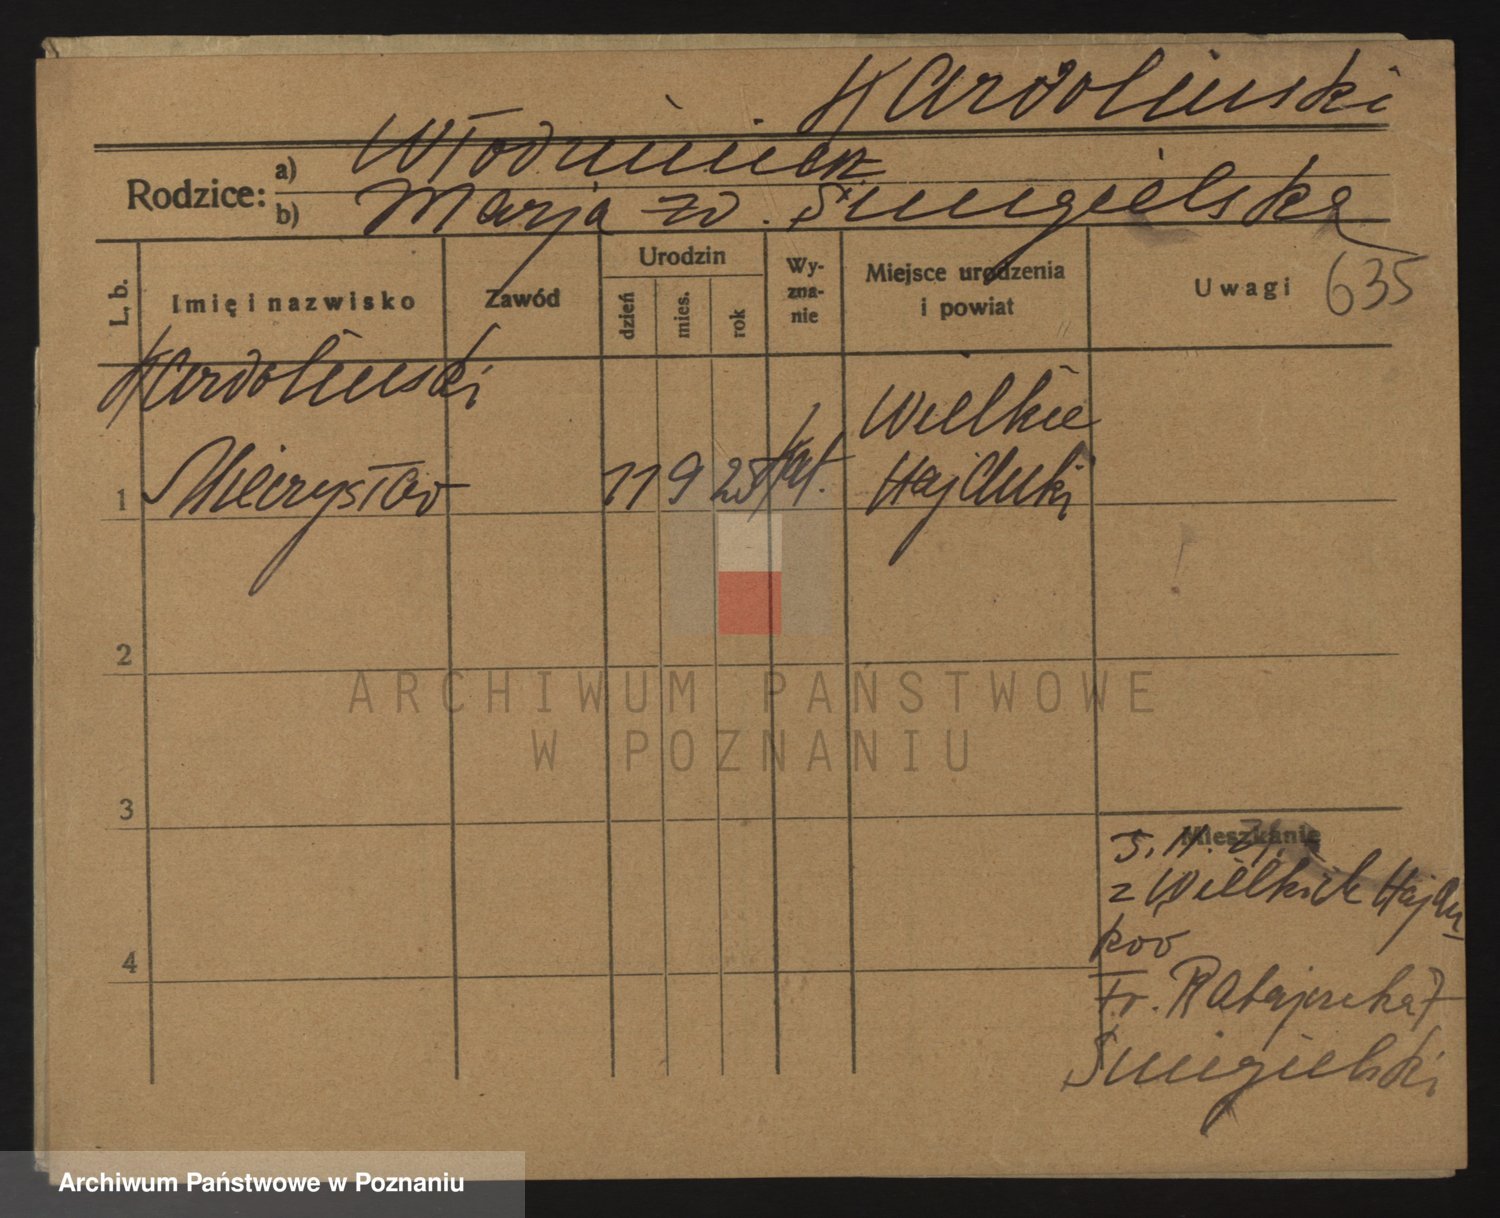 Kardolinski
Rodzice:
a) Włodzimierz
b) Marja zd. Śmigielska
L. b.
Imię i nazwisko
Zawód
Urodzin
dzień
mies.
rok
Wy-
zna-
nie
Miejsce urodzenia
i powiat
Uwagi 635
Kardolinski
Wielkie
1 Mieczysław 11 9 25 kat. Hajduki
2
ARCHIWUM PAŃSTWOWE
W POZNANIU
3
Mieszkanie
5. 11. 31.
z Wielkich Hajdu
ków
Fr. Ratajczaka 7
Śmigielski
4
Archiwum Państwowe w Poznaniu